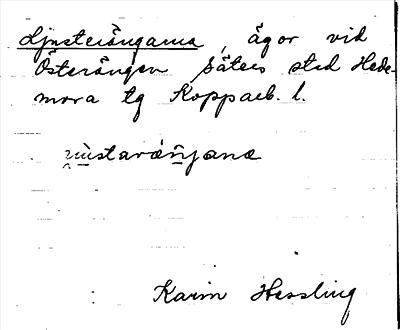 Ljusterängarna, ägor vid
Österängen Säters stad Hede-
mora tg Koppacb. l.
Karin Hessling